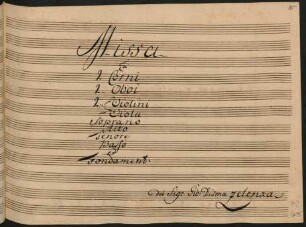 Missa
â
2. Corni
2. Oboi
2. Violini
Viola
Soprano
Alto
Tenore
Basso
e
Fondament:
Del Sigr: Gio: Disma Zelenka